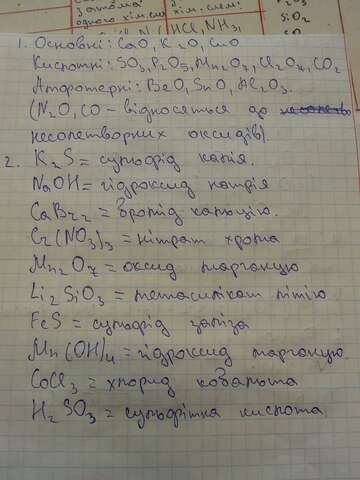 з атома
одного хім.ел
х/м.-елем:
HCl, NH3,
SiO2
1. Основні: CaO, K2O, CuO
Кислотні: SO3, P2O5, Mn2O7, Cl2O7, CO2
Амфотерні: BeO, SnO, Al2O3.
(N2O, CO - відносяться до
несолетворних оксидів).
2. K2S = сульфід калія.
NaOH = гідроксид натрія
CaBr2 = бромід кальцію.
Cr(NO3)3 = нітрат хрома
Mn2O7 = оксид марганцю
Li2SiO3 = метасилікат літію
FeS = сульфід заліза
Mn(OH)4 = гідроксид марганцю.
CoCl3 = хлорид кобальта
H2SO3 = сульфітна кислота